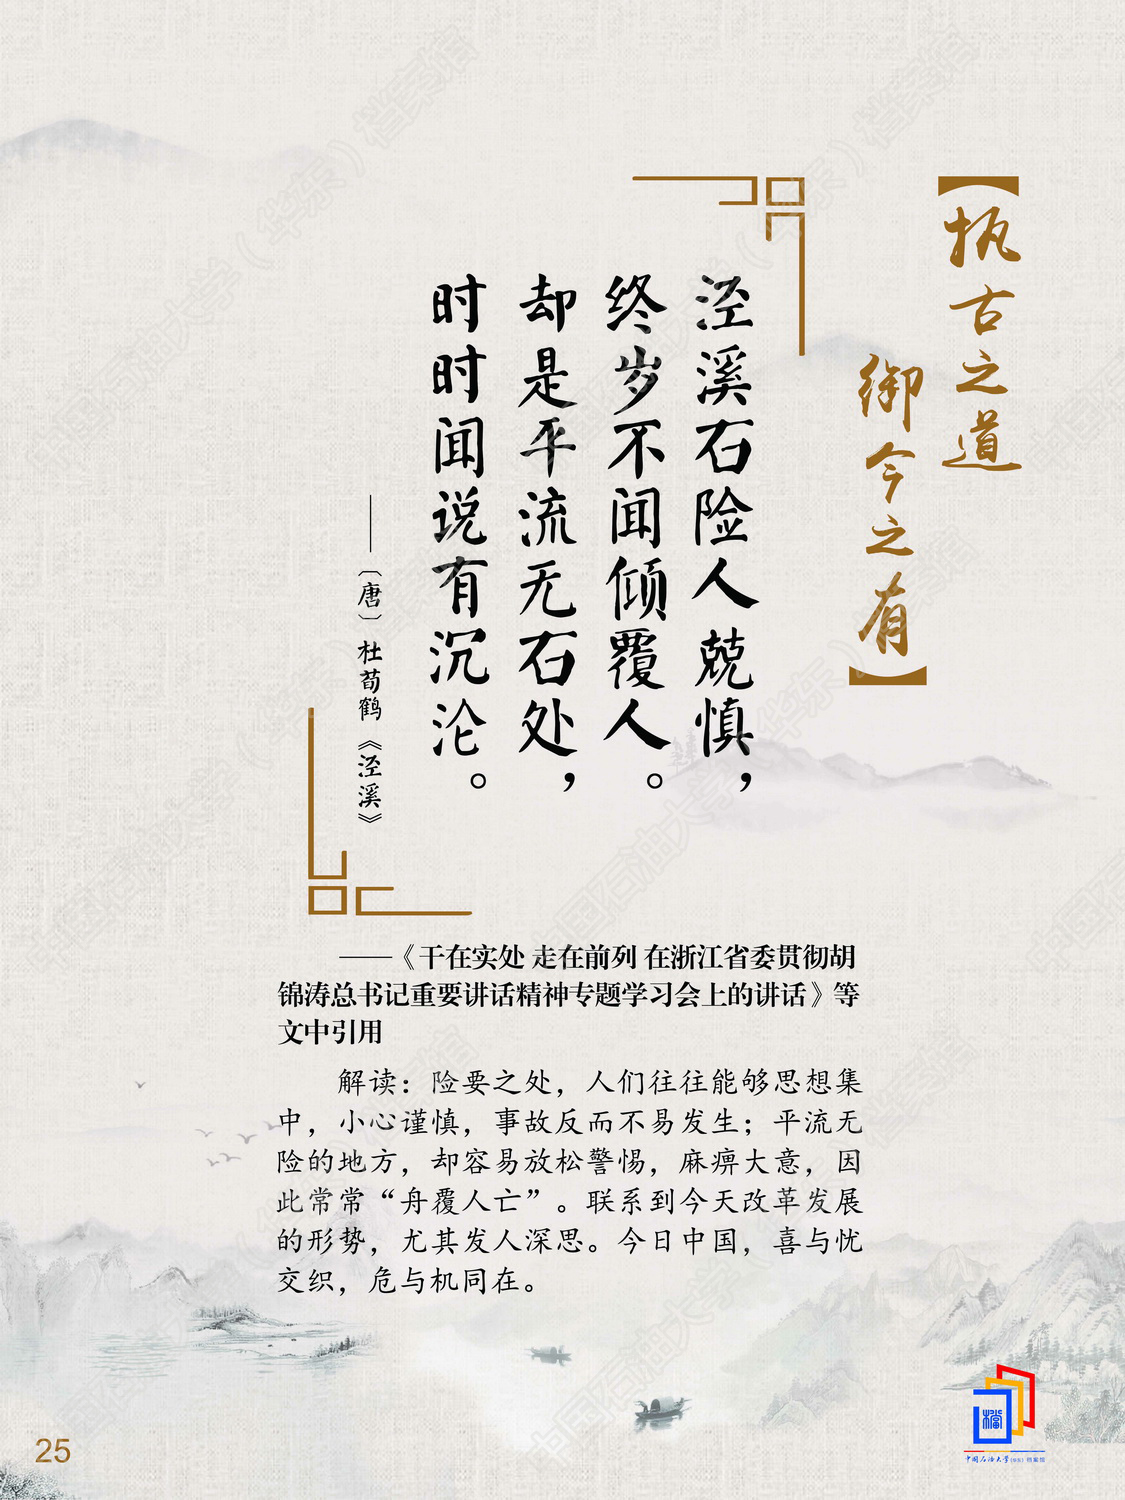 【执古之道
御今之有】
泾溪石险人兢慎，
终岁不闻倾覆人。
却是平流无石处，
时时闻说有沉沦。
——〔唐〕杜荀鹤《泾溪》
——《干在实处 走在前列 在浙江省委贯彻胡
锦涛总书记重要讲话精神专题学习会上的讲话》等
文中引用
解读：险要之处，人们往往能够思想集
中，小心谨慎，事故反而不易发生；平流无
险的地方，却容易放松警惕，麻痹大意，因
此常常“舟覆人亡”。联系到今天改革发展
的形势，尤其发人深思。今日中国，喜与忧
交织，危与机同在。
檔
中国石油大学(华东) 档案馆
25
中国石油大学（华东）档案馆